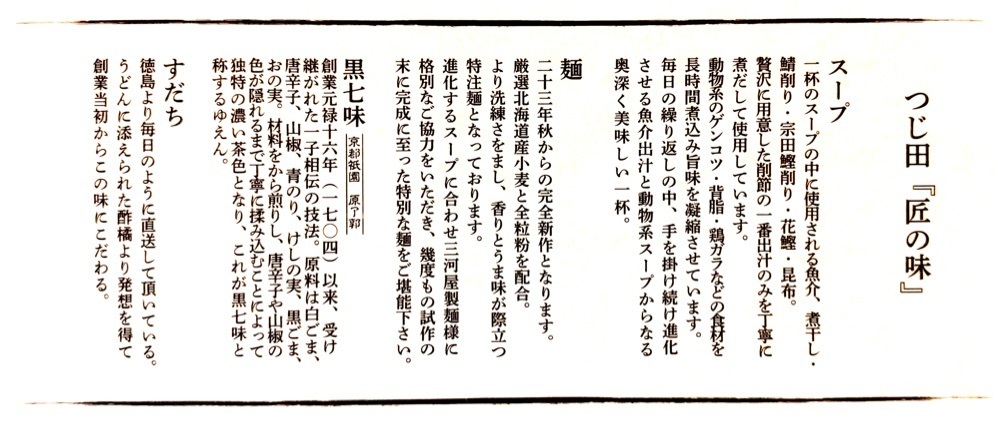 つじ田『匠の味』
スープ
一杯のスープの中に使用される魚介、煮干し・
鯖削り・宗田鰹削り・花鰹・昆布。
贅沢に用意した削節の一番出汁のみを丁寧に
煮だして使用しています。
動物系のゲンコツ・背脂・鶏ガラなどの食材を
長時間煮込み旨味を凝縮させています。
毎日の繰り返しの中、手を掛け続け進化
させる魚介出汁と動物系スープからなる
奥深く美味しい一杯。
麺
二十三年秋からの完全新作となります。
厳選北海道産小麦と全粒粉を配合。
より洗練さをまし、香りとうま味が際立つ
特注麺となっております。
進化するスープに合わせ三河屋製麺様に
格別なご協力をいただき、幾度もの試作の
末に完成に至った特別な麺をご堪能下さい。
黒七味 京都祇園 原了郭
創業元禄十六年（一七〇四）以来、受け
継がれた一子相伝の技法。原料は白ごま、
唐辛子、山椒、青のり、けしの実、黒ごま、
おの実。材料をから煎りし、唐辛子や山椒の
色が隠れるまで丁寧に揉み込むことによって
独特の濃い茶色となり、これが黒七味と
称するゆえん。
すだち
徳島より毎日のように直送して頂いている。
うどんに添えられた酢橘より発想を得て
創業当初からこの味にこだわる。